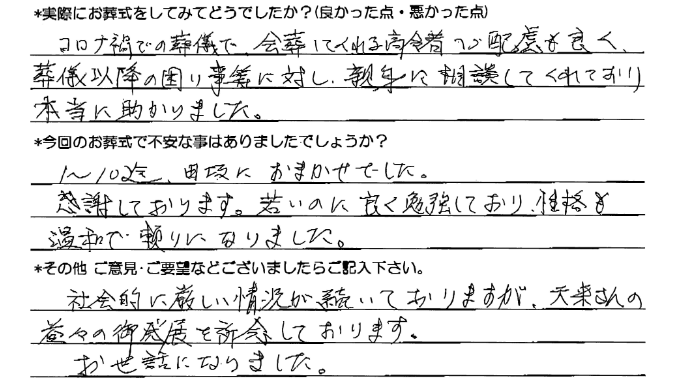 *実際にお葬式をしてみてどうでしたか?(良かった点・悪かった点)
コロナ禍での葬儀で、会葬してくれる高令者への配慮も良く、
葬儀以降の困り事等に対し、親身に相談してくれており
本当に助かりました。
*今回のお葬式で不安な事はありましたでしょうか?
1〜10迄、田坂におまかせでした。
感謝しております。若いのに良く勉強しており、性格も
温和で頼りになりました。
*その他 ご意見・ご要望などございましたらご記入下さい。
社会的に厳しい情況が続いておりますが、天来さんの
益々の御発展を祈念しております。
お世話になりました。